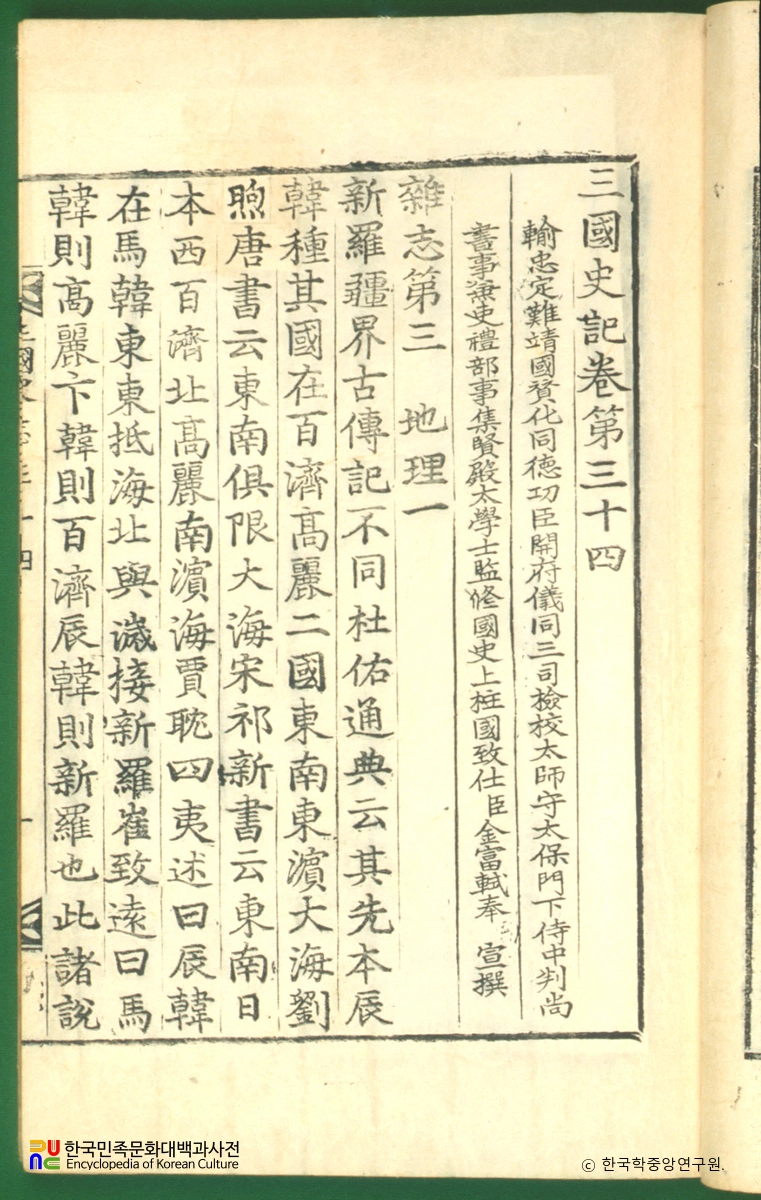 三國史記卷第三十四
輸忠定難靖國贊化同德功臣開府儀同三司檢校太師守太保門下侍中判尚
書事兼吏禮部事集賢殿太學士監修國史上柱國致仕臣金富軾奉 宣撰
雜志第三 地理一
新羅疆界古傳記不同杜佑通典云其先本辰
韓種其國在百濟高麗二國東南東濱大海劉
煦唐書云東南俱限大海宋祁新書云東南日
本西百濟北高麗南濱海賈耽四夷述曰辰韓
在馬韓東東抵海北與濊接新羅崔致遠曰馬
韓則高麗卞韓則百濟辰韓則新羅也此諸說
한국민족문화대백과사전
Encyclopedia of Korean Culture
© 한국학중앙연구원.